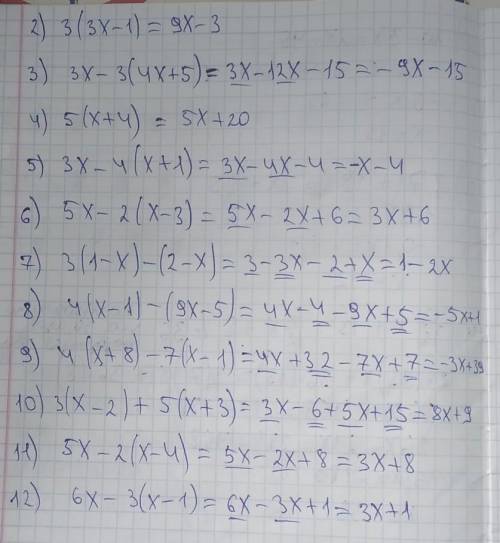 2) 3(3x-1) = 9x-3
3) 3x-3(4x+5) = 3x-12x-15 = -9x-15
4) 5(x+4) = 5x+20
5) 3x-4(x+1) = 3x-4x-4 = -x-4
6) 5x-2(x-3) = 5x-2x+6 = 3x+6
7) 3(1-x)-(2-x) = 3-3x-2+x = 1-2x
8) 4(x-1)-(9x-5) = 4x-4-9x+5 = -5x+1
9) 4(x+8)-7(x-1) = 4x+32-7x+7 = -3x+39
10) 3(x-2)+5(x+3) = 3x-6+5x+15 = 8x+9
11) 5x-2(x-4) = 5x-2x+8 = 3x+8
12) 6x-3(x-1) = 6x-3x+1 = 3x+1